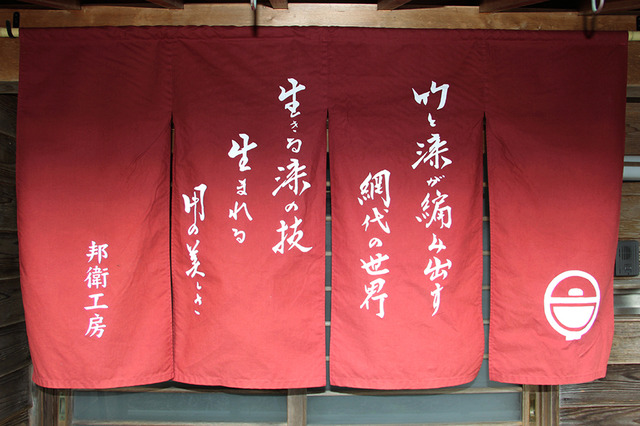 竹と漆が編み出す
網代の世界
生きる漆の技
生まれる
用の美しさ
邦衛工房